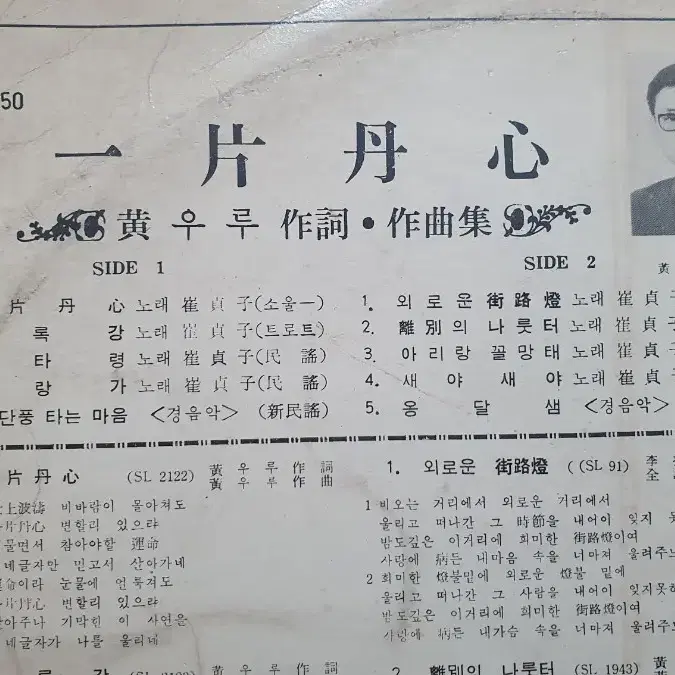 50
一片丹心
黃우루 作詞·作曲集
SIDE 1
片丹心 노래 崔貞子(소울一)
록강 노래 崔貞子(트로트)
타령 노래 崔貞子(民謠)
랑가 노래 崔貞子(民謠)
단풍 타는 마음 <경음악> (新民謠)
SIDE 2
1. 외로운 街路燈 노래 崔貞子
2. 離別의 나룻터 노래 崔貞子
3. 아리랑 꼴망태 노래 崔貞子
4. 새야새야 노래 崔貞子
5. 옹달샘 <경음악>
黃
片丹心 (SL 2122) 黃우루 作詞
黃우루 作曲
上波濤 비바람이 몰아쳐도
片丹心 변할리 있으랴
물면서 참아야할 運命
네글자만 믿고서 산아가네
命이라 눈물에 언룩져도
片丹心 변할리 있으랴
아주나 기막힌 이 사연을
네글자가 나를 울리네
1. 외로운 街路燈 ((SL 91) 李
全
1 비오는 거리에서 외로운 거리에서
울리고 떠나간 그 時節을 내어이 잊지 못
밤도깊은 이거리에 희미한 街路燈이여
사랑에 病든 내마음 속을 너마저 울려주
2 희미한 燈불밑에 외로운 燈불 밑에
울리고 떠나간 그 사람을 내어이 잊지못하
밤도깊은 이거리에 희미한 街路燈이여
사랑에 病든 내가슴 속을 너마저 울려주
강 黃우루 作詞
2. 離別의 나룻터 (SL 1943) 黃